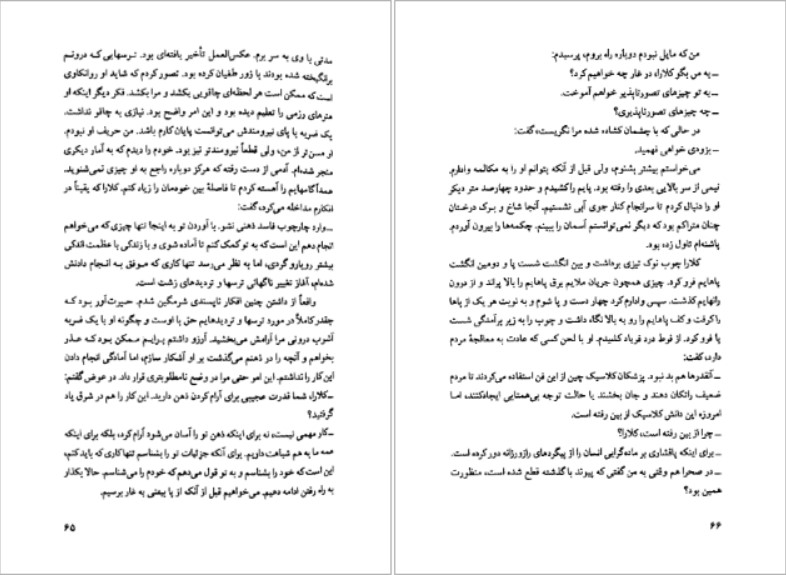 مدتی با وی به سر برم. عکس‌العمل تأخیر یافته‌ای بود. ترسهایی که درونم
برانگیخته شده بودند با زور طغیان کرده بود. تصور کردم که شاید او روانکاوی
است که ممکن است هر لحظه‌ای چاقویی بکشد و مرا بکشد. فکر دیگر اینکه او
هنرهای رزمی را تعلیم دیده بود و این امر واضح بود. نیازی به چاقو نداشت.
یک ضربه با پای نیرومندش می‌توانست پایان کارم باشد. من حریف او نبودم.
او مسن‌تر از من، ولی قطعاً نیرومندتر نیز بود. خودم را دیدم که به آمار دیگری
منجر شده‌ام. آدمی از دست رفته که هرگز دوباره راجع به او چیزی نمی‌شنوید.
عمداً گامهایم را آهسته کردم تا فاصلهٔ بین خودمان را زیاد کنم. کلارا که یقیناً در
افکارم مداخله می‌کرد، گفت:
ــ وارد چارچوب فاسد ذهنی نشو. با آوردن تو به اینجا تنها چیزی که می‌خواهم
انجام دهم این است که به تو کمک کنم تا آماده شوی و با زندگی با عظمت اندکی
بیشتر روبارو گردی، اما به نظر می‌رسد تنها کاری که موفق به انجام دادنش
شده‌ام، آغاز تغییر ناگهانی ترسها و تردیدهای زشت است.
واقعاً از داشتن چنین افکار ناپسندی شرمگین شدم. حیرت‌آور بود که
چقدر کاملاً در مورد ترسها و تردیدهایم حق با اوست و چگونه او با یک ضربه
آشوب درونی مرا آرامش می‌بخشید. آرزو داشتم برایم ممکن بود که عذر
بخواهم و آنچه را در ذهنم می‌گذشت بر او آشکار سازم، اما آمادگی انجام دادن
این کار را نداشتم. این امر حتی مرا در وضع نامطلوبتری قرار داد. در عوض گفتم:
ــ کلارا، شما قدرت عجیبی برای آرام کردن ذهن دارید. این کار را هم در شرق یاد
گرفتید؟
ــ کار مهمی نیست، نه برای اینکه ذهن تو را آسان می‌شود آرام کرد، بلکه برای اینکه
همه ما به هم شباهت داریم. برای آنکه جزئیات تو را بشناسم تنها کاری که باید کنم،
این است که خود را بشناسم و به تو قول می‌دهم که خودم را می‌شناسم. حالا بگذار
به راه رفتن ادامه دهیم. می‌خواهیم قبل از آنکه از پا بیفتی به غار برسیم.
۶۵
من که مایل نبودم دوباره راه بروم، پرسیدم:
ــ به من بگو کلارا، در غار چه خواهیم کرد؟
ــ به تو چیزهای تصورناپذیر خواهم آموخت.
ــ چه چیزهای تصورناپذیری؟
در حالی که با چشمان گشاده شده مرا نگریست، گفت:
ــ بزودی خواهی فهمید.
می‌خواستم بیشتر بشنوم، ولی قبل از آنکه بتوانم او را به مکالمه وادارم
نیمی از سر بالایی بعدی را رفته بود. پایم را کشیدم و حدود چهارصد متر دیگر
او را دنبال کردم تا سرانجام کنار جوی آبی نشستیم. آنجا شاخ و برگ درختان
چنان متراکم بود که دیگر نمی‌توانستم آسمان را ببینم. چکمه‌ها را بیرون آوردم.
پاشنه‌ام تاول زده بود.
کلارا چوب نوک تیزی برداشت و بین انگشت شست پا و دومین انگشت
پاهایم فرو کرد. چیزی همچون جریان ملایم برق پاهایم را بالا پراند و از درون
رانهایم گذشت. سپس وادارم کرد چهار دست و پا شوم و به نوبت هر یک از پاها
را گرفت و کف پاهایم را رو به بالا نگاه داشت و چوب را به زیر برآمدگی شست
پا فرو کرد. از فرط درد فریاد کشیدم. او با لحن کسی که عادت به معالجهٔ مردم
دارد، گفت:
ــ آنقدرها هم بد نبود. پزشکان کلاسیک چین از این فن استفاده می‌کردند تا مردم
ضعیف را تکان دهند و جان بخشند یا حالت توجه بی‌همتایی ایجاد کنند، اما
امروزه این دانش کلاسیک از بین رفته است.
ــ چرا از بین رفته است، کلارا؟
ــ برای اینکه پافشاری بر ماده‌گرایی انسان را از پیگردهای رازورزانه دور کرده است.
ــ در صحرا هم وقتی به من گفتی که پیوند با گذشته قطع شده است، منظورت
همین بود؟
۶۶